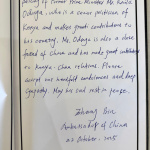 passing of former Prime Minister Mr. Raila
Odinga, who is a senior politician of
Kenya and makes great contributions to
his country. Mr. Odinga is also a close
friend of China and has made great contributions
on Kenya-China relations. Please
accept our heartfelt condolences and deep
sympathy. May his soul rest in peace.
Ambassador of China
October, 2025